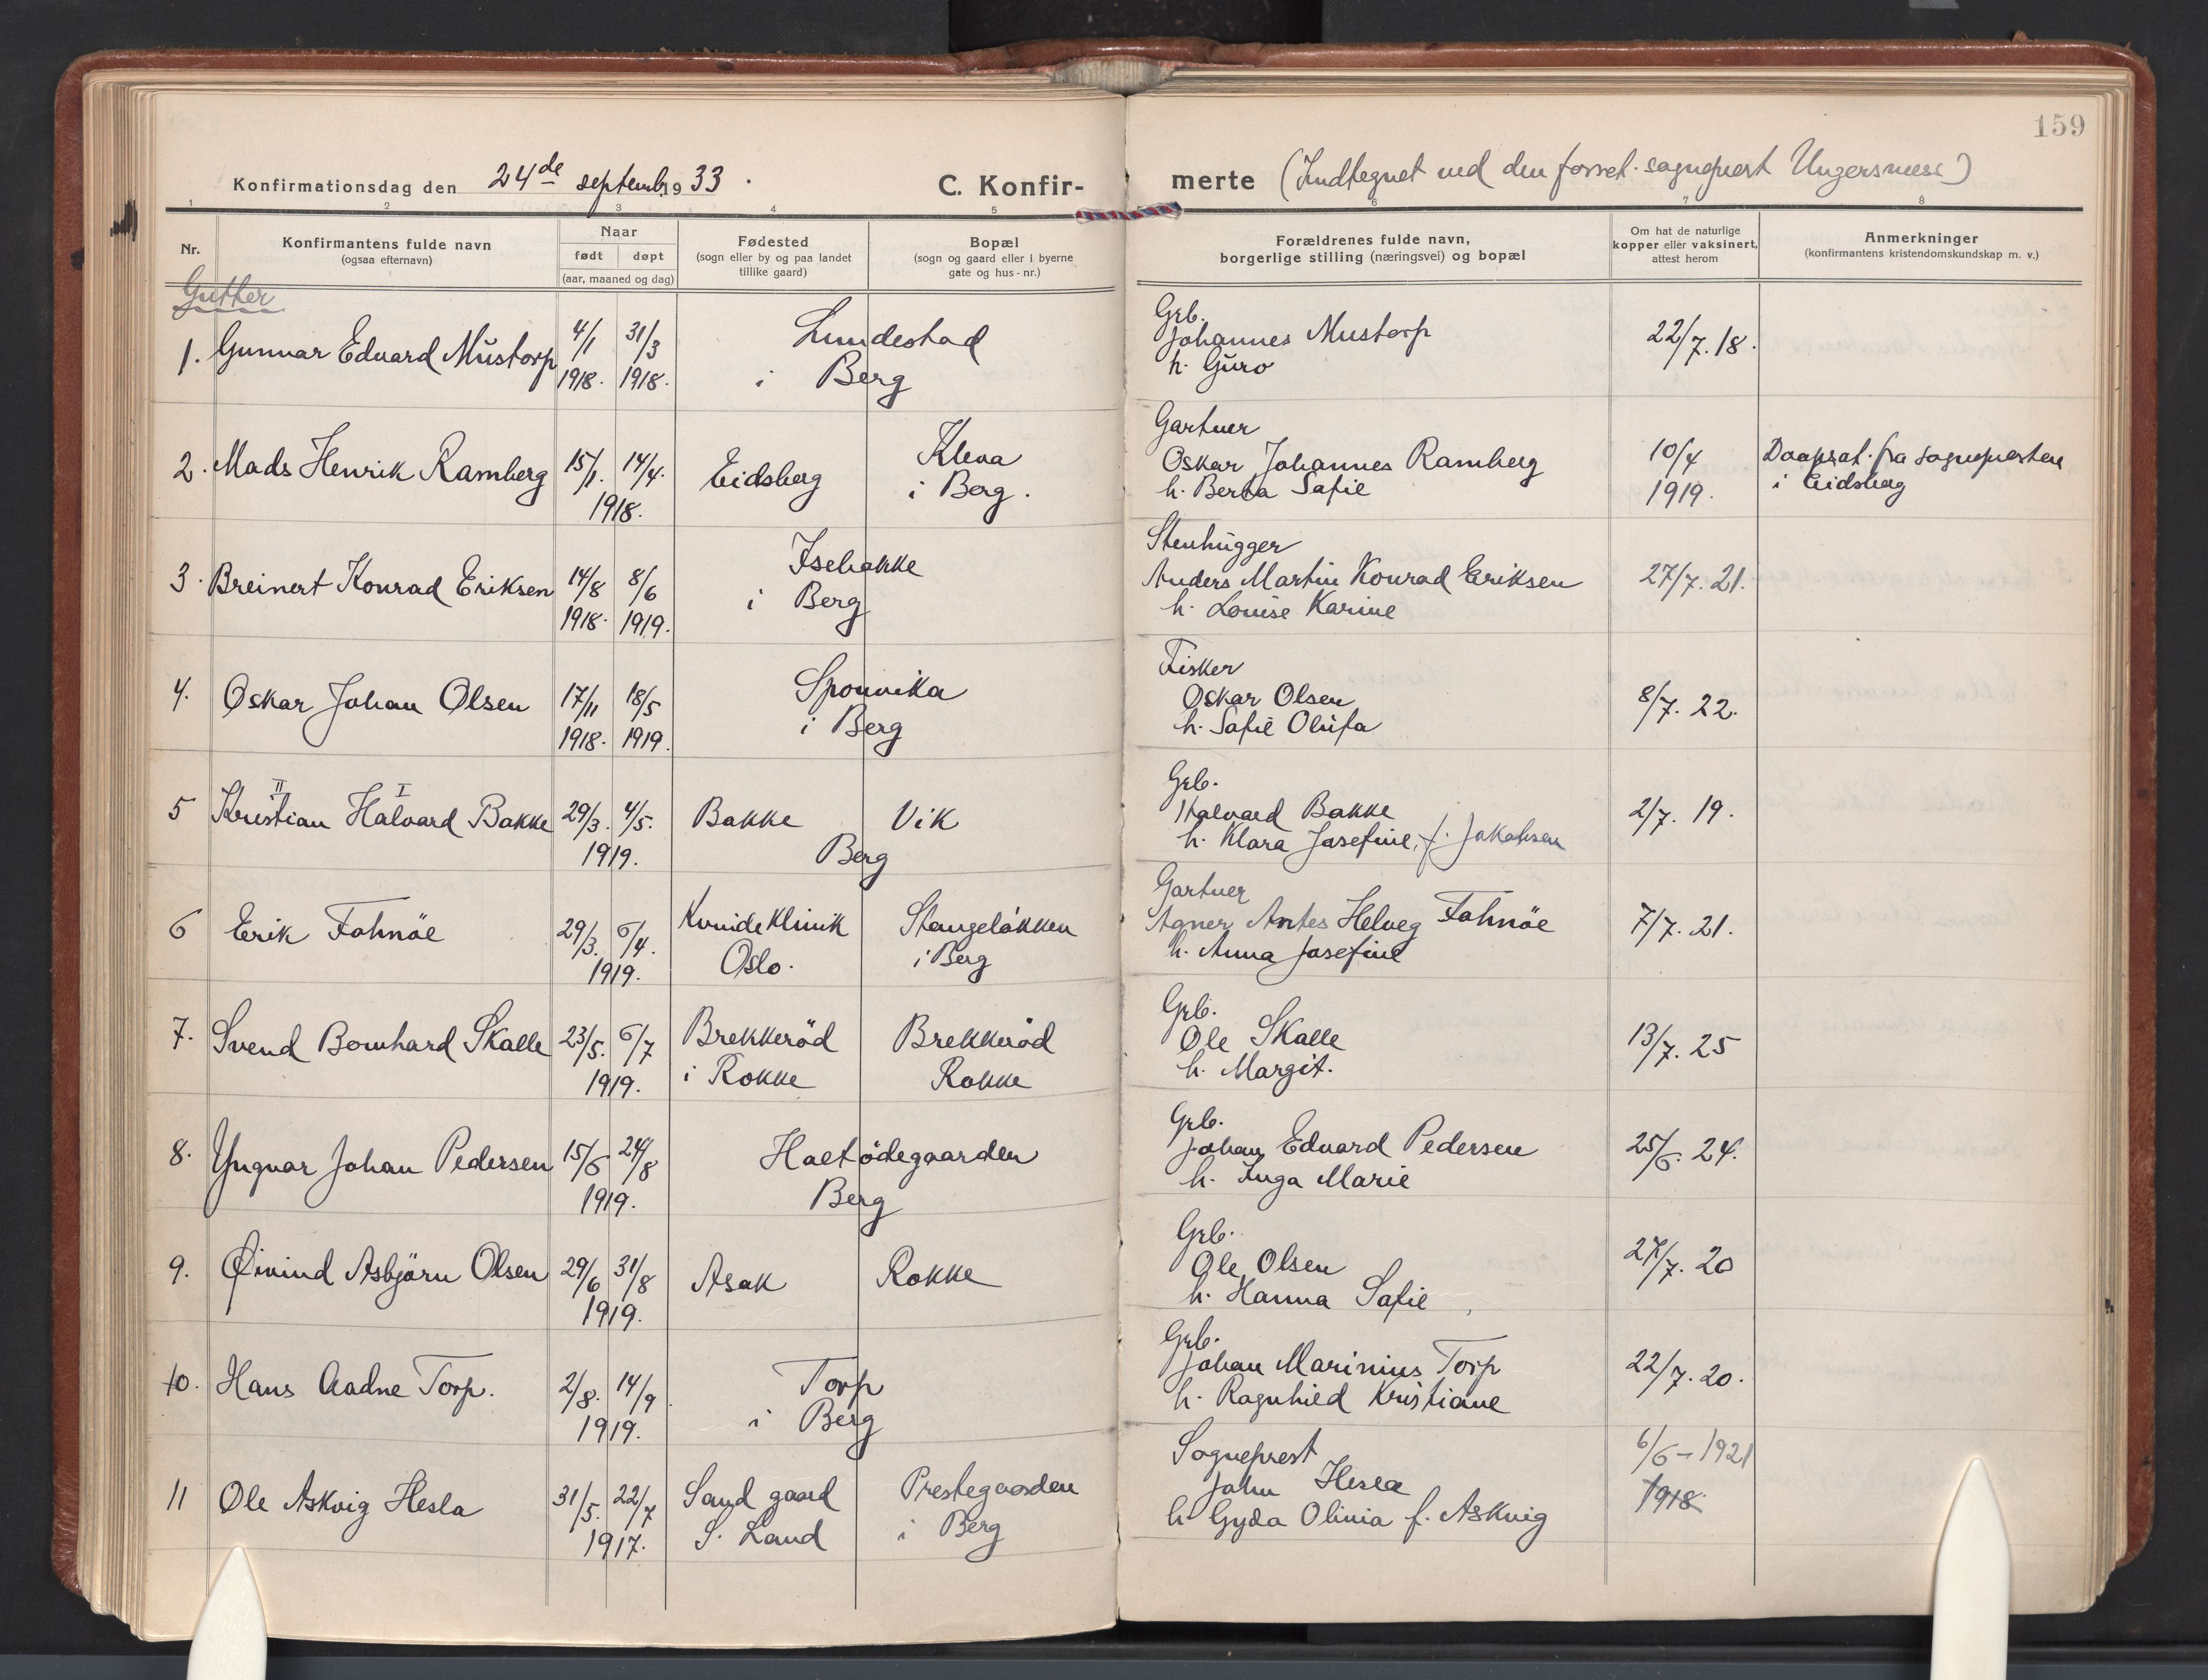 159
Konfirmationsdag den 24de septemb. 1933. C. Konfir-merte (Indtegnet ved den forret. sogneprest Ungersness)
1 2 3 4 5 6 7 8
Nr.
Konfirmantens fulde navn
(ogsaa efternavn)
Naar
født døpt
(aar, maaned og dag)
Fødested
(sogn eller by og paa landet
tillike gaard)
Bopæl
(sogn og gaard eller i byerne
gate og hus-nr.)
Forældrenes fulde navn,
borgerlige stilling (næringsvei) og bopæl
Om hat de naturlige
kopper eller vaksinert,
attest herom
Anmerkninger
(konfirmantens kristendomskundskap m. v.)
Gutter
1. Gunnar Edvard Mustorp 4/1 1918. 31/3 1918. Lundestad
i Berg
Grb.
Johannes Mustorp
h. Guro
22/7. 18.
2. Mads Henrik Ramberg 15/1. 14/4. 1918. Eidsberg
Kleva
i Berg.
Gartner
Oskar Johannes Ramberg
h. Berta Sofie
10/4
1919.
Daapsat. fra sognepresten
i Eidsberg
3. Breinert Konrad Eriksen 14/8 1918. 8/6 1919. Isebakke
i Berg
Stenhugger
Anders Martin Konrad Eriksen
h. Louise Karine
27/7. 21.
4. Oskar Johan Olsen 17/11 1918. 18/5 1919. Sponvika
i Berg
Fisker
Oskar Olsen
h. Sofie Olufa
8/7. 22.
II I
5 Kristian Halvard Bakke 29/3. 4/5. 1919. Bakke Vik
Berg
Grb.
Halvard Bakke
h. Klara Josefine, f. Jakobsen
2/7. 19.
6 Erik Fahnöe 29/3. 6/4. 1919. Kvindeklinik
Oslo.
Stangeløkken
i Berg
Gartner
Agner Antes Helveg Fahnöe
h. Anna Josefine
7/7. 21.
7. Svend Bernhard Skalle 23/5. 6/7 1919. Brekkeröd
i Rokke
Brekkeröd
Rokke
Grb.
Ole Skalle
h. Margit.
13/7. 25
8. Yngvar Johan Pedersen 15/6 24/8 1919.
Berg
Grb.
Johan Edvard Pedersen
h. Inga Marie
25/6. 24.
9. Øivind Asbjörn Olsen 29/6 31/8 1919. Asak Rokke
Grb.
Ole Olsen
h. Hanna Sofie
27/7. 20
10. Hans Aadne Torp. 2/8. 14/9 1919. Torp
i Berg
Grb.
Johan Marinius Torp
h. Ragnhild Kristiane
22/7. 20.
11 Ole Askvig Hesla 31/5. 22/7 1917. Sand gaard
S. Land
Prestegaarden
i Berg
Sogneprest
John Hesla
h. Gyda Olivia f. Askvig
6/6 - 1921
1918.